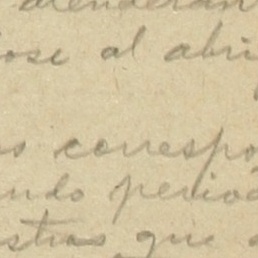 atenderan
ose al abri
o correspo
ndo period
stras que a